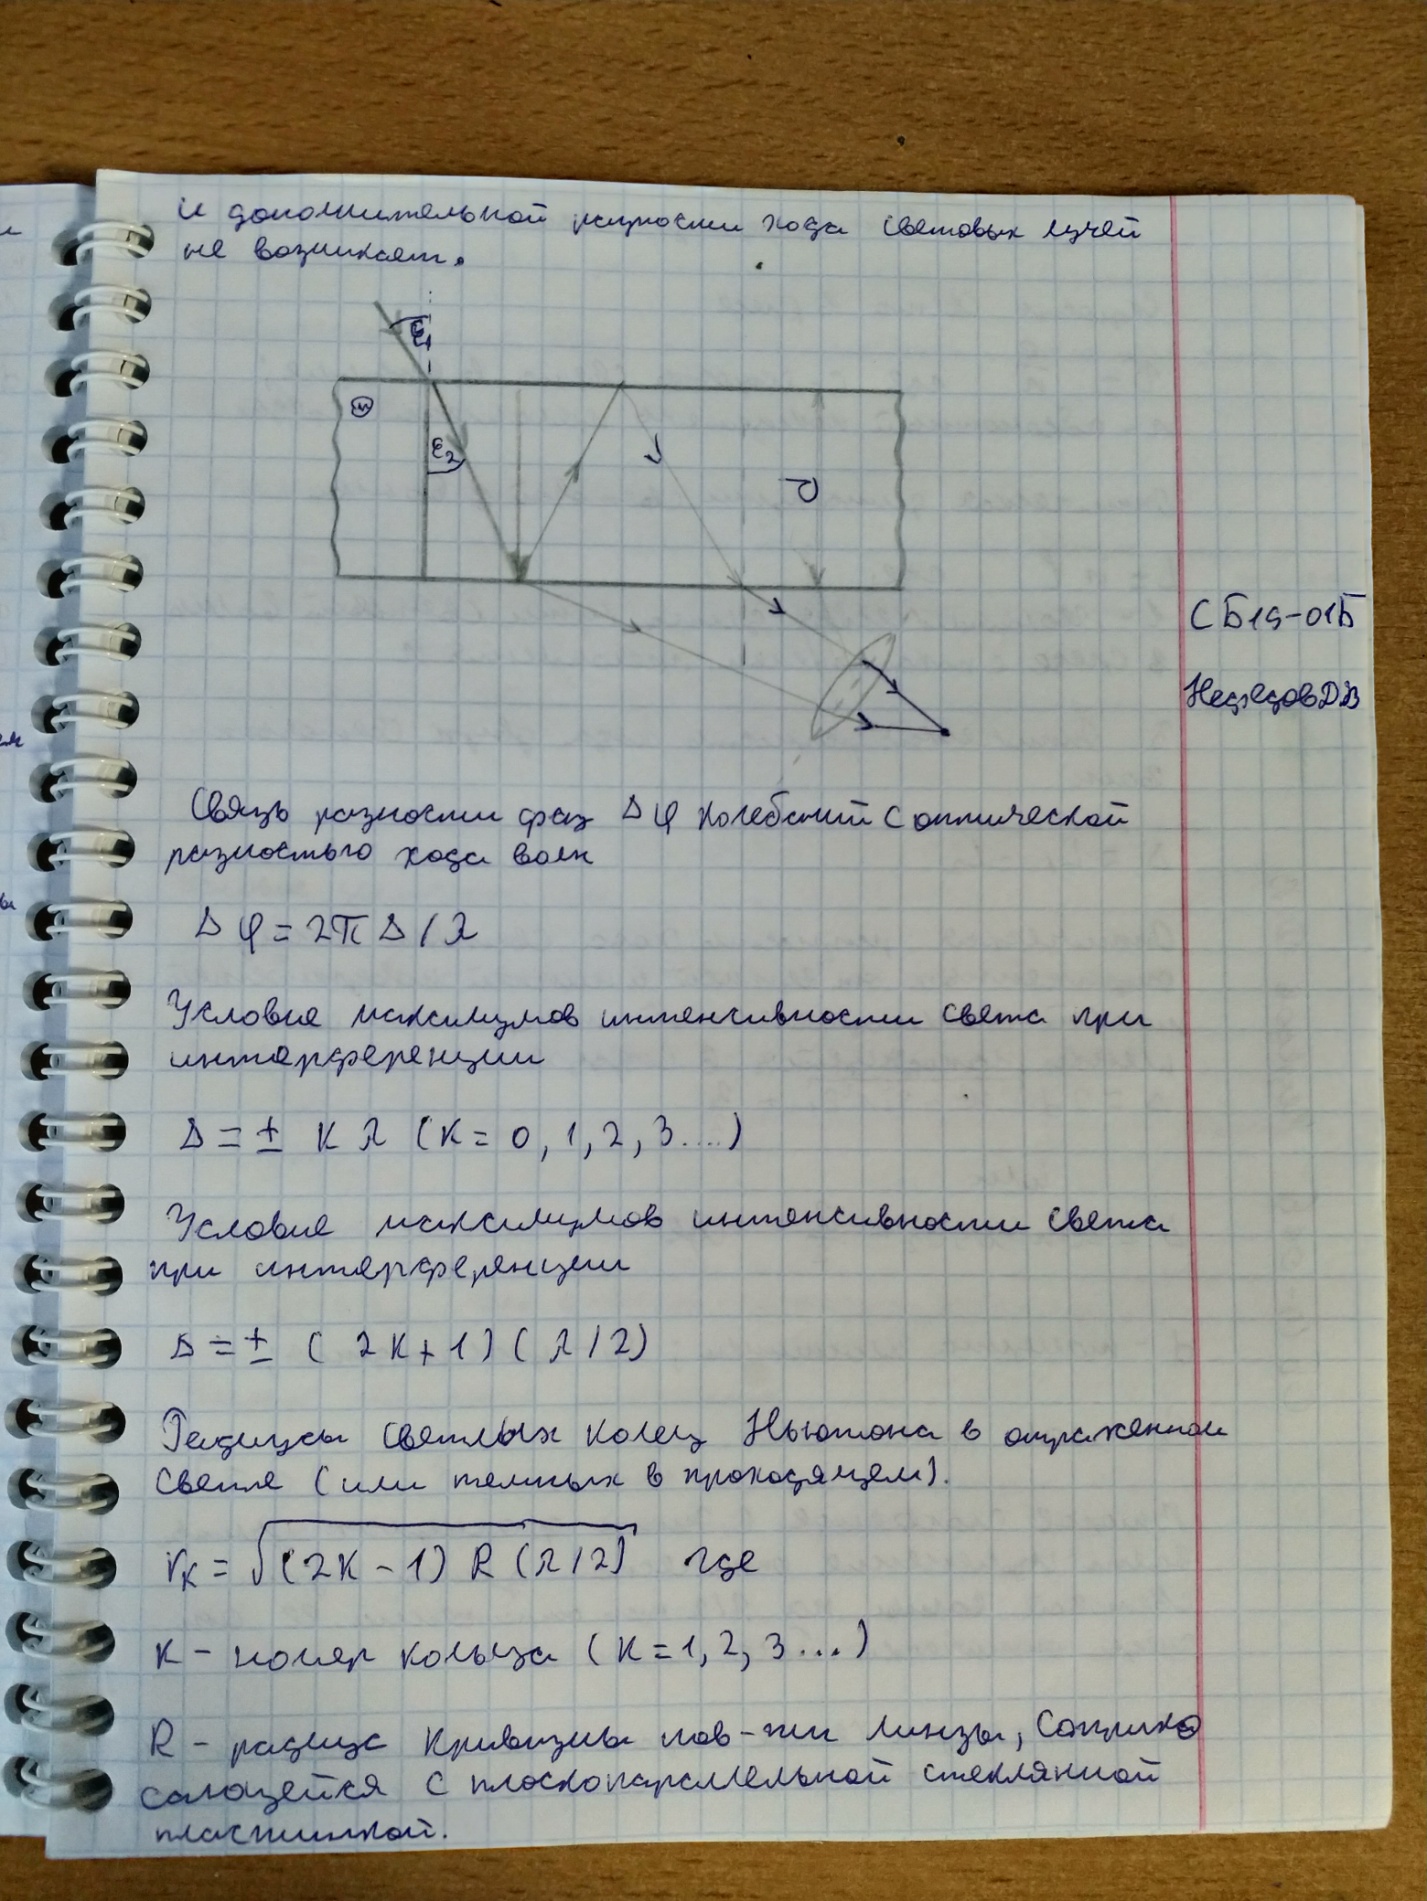 и дополнительной разности хода световых лучей
не возникает.
ε₁
ε₂
d
СБ19-01Б
Нефедов ДВ
Связь разности фаз Δφ колебаний с оптической
разностью хода волн
Δφ = 2πΔ/λ
Условие максимумов интенсивности света при
интерференции
Δ = ± kλ (k = 0, 1, 2, 3....)
Условие максимумов интенсивности света
при интерференции
Δ = ± (2k+1)(λ/2)
Радиусы светлых колец Ньютона в отраженном
свете (или темных в проходящем).
rₖ = √(2k-1) R (λ/2) где
k - номер кольца (k = 1, 2, 3...)
R - радиус кривизны пов-ти линзы, соприка
сающейся с плоскопараллельной стеклянной
пластинкой.